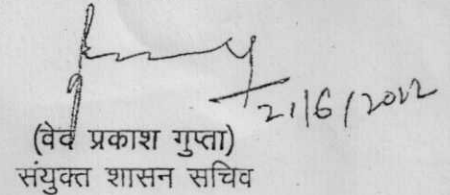 21/6/2012
(वेद प्रकाश गुप्ता)
संयुक्त शासन सचिव